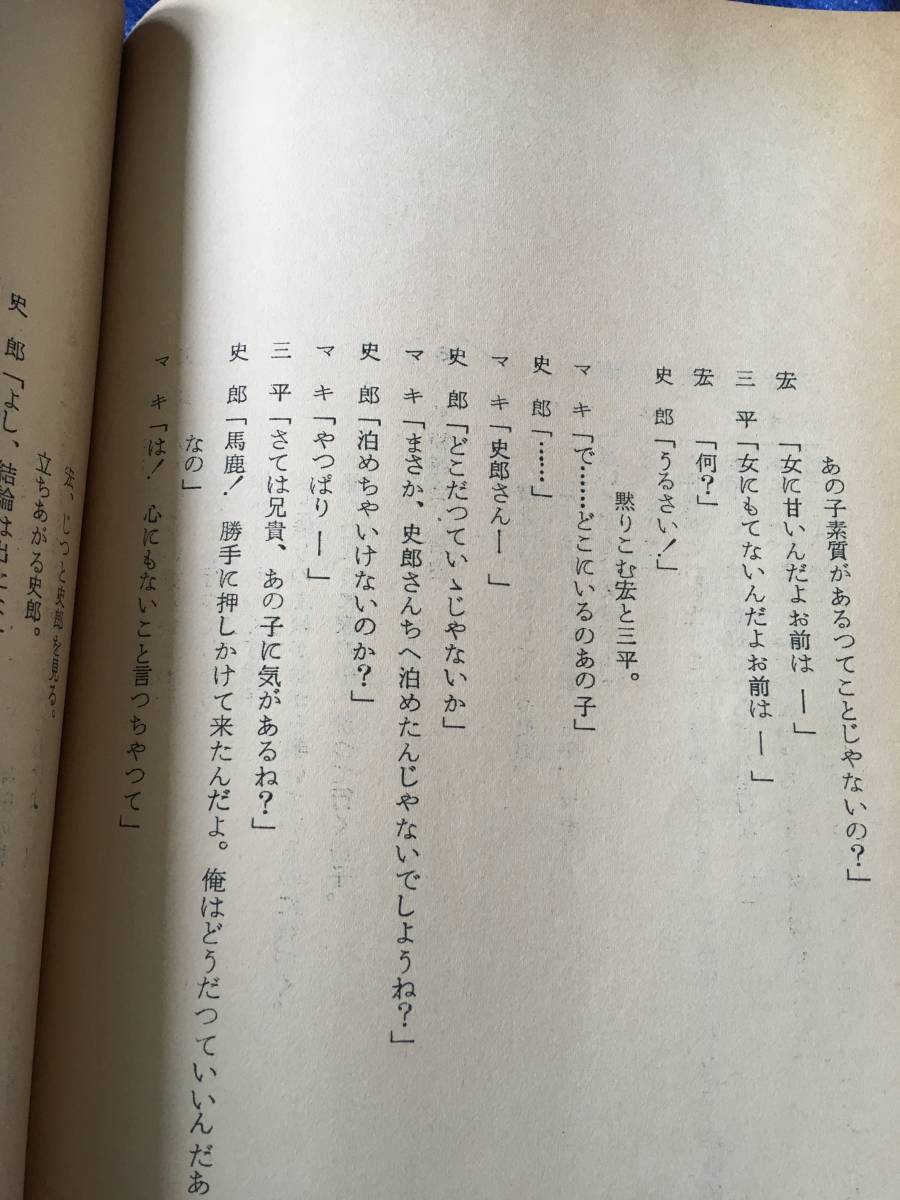 あの子素質があるつてことじゃないの？」
宏　「女に甘いんだよお前は―」
三平「女にもてないんだよお前は―」
宏　「何？」
史郎「うるさい！」
黙りこむ宏と三平。
マキ「で……どこにいるのあの子」
史郎「……」
マキ「史郎さん―」
史郎「どこだつていゝじゃないか」
マキ「まさか、史郎さんちへ泊めたんじゃないでしようね？」
史郎「泊めちゃいけないのか？」
マキ「やつぱり―」
三平「さては兄貴、あの子に気があるね？」
史郎「馬鹿！　勝手に押しかけて来たんだよ。俺はどうだつていいんだあ
なの」
マキ「は！　心にもないこと言つちゃつて」
宏、じつと史郎を見る。
立ちあがる史郎。
史郎「よし、結論は出た